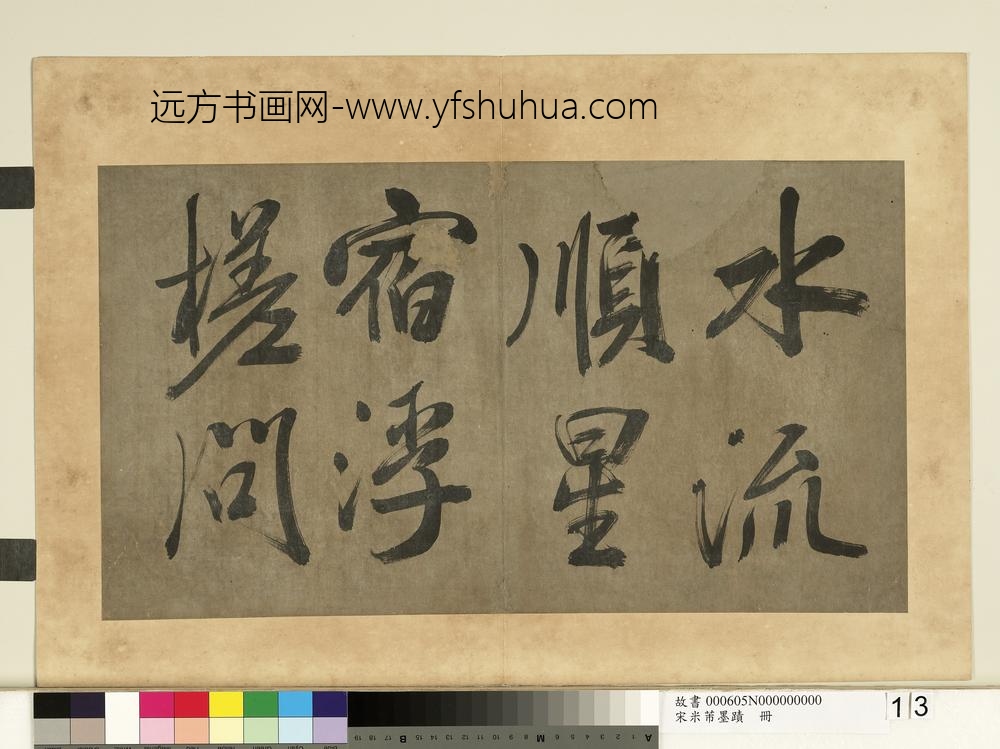 远方书画网-www.yfshuhua.com
水流
順星
宿浮
槎問
故書 000605N000000000
宋米芾墨蹟 冊
1 3